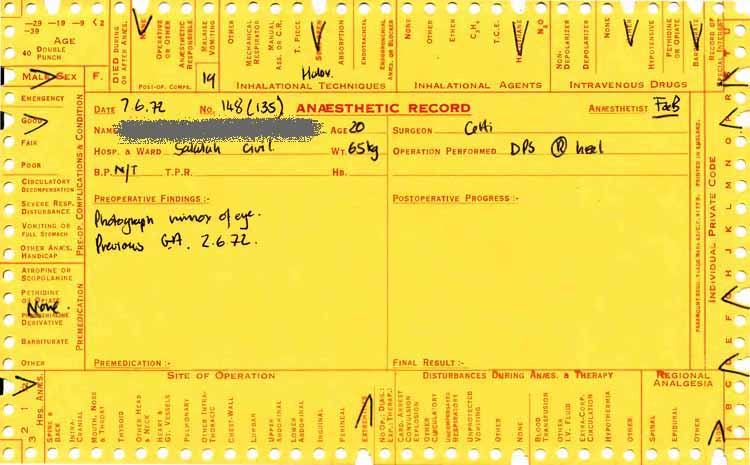 -29 -19 -9 <2
-39
AGE
40 DOUBLE PUNCH
MALE SEX F.
DIED DURING OR AFTER ANÆS.
NONE
OPERATIVE OR OTHER
ANÆSTHETIC RESPONSIBLE
MALAISE VOMITING
OTHER
POST-OP. COMPS.
19
MECHANICAL RESPIRATOR
MANUAL ASS. OR C.R.
T. PIECE
ABSORPTION
ENDOTRACHEAL
ENDOBRONCHIAL ANÆS. OR BLOCKER
Halov.
INHALATIONAL TECHNIQUES
NONE
OTHER
ETHER
C₃H₆
T.C.E.
HALOTHANE
N₂O
INHALATIONAL AGENTS
NON-DEPOLARIZER
DEPOLARIZER
NONE
OTHER
HYPOTENSIVE
PETHIDINE OR OPIATE
BARBITURATE
INTRAVENOUS DRUGS
RECORD OF SPECIAL INTEREST
EMERGENCY
GOOD
FAIR
POOR
CIRCULATORY DECOMPENSATION
SEVERE RESP. DISTURBANCE
VOMITING OR FULL STOMACH
OTHER ANÆS. HANDICAP
PRE-OP. COMPLICATIONS & CONDITION
ATROPINE OR SCOPOLAMINE
PETHIDINE OR OPIATE
None
DERIVATIVE
BARBITURATE
OTHER
PREMEDICATION
DATE 7.6.72 NO. 148 (135) ANÆSTHETIC RECORD ANÆSTHETIST F&B
NAME AGE 20 SURGEON Cetti
HOSP. & WARD Salalah Civil WT. 65kg OPERATION PERFORMED DPS Ⓡ heel
B.P. N/T T.P.R. HB.
PREOPERATIVE FINDINGS :- POSTOPERATIVE PROGRESS :-
Photograph mirror of eye.
Previous G.A. 2.6.72.
PREMEDICATION :- FINAL RESULT :-
INDIVIDUAL PRIVATE CODE
PRINTED IN ENGLAND.
HRS. ANÆS.
3 2 1
SITE OF OPERATION
SPINE & BACK
INTRA-CRANIAL
MOUTH, NOSE & THROAT
THYROID
OTHER HEAD & NECK
HEART & GT. VESSELS
PULMONARY
OTHER INTRA-THORACIC
CHEST-WALL
LUMBAR
UPPER ABDOMINAL
LOWER ABDOMINAL
INGUINAL
PERINEAL
EXTREMITIES
NO OPN. (DIAG.; EXP.; THERAP.)
DISTURBANCES DURING ANÆS. & THERAPY
CARD. ARREST
CONVULSION
EXPLOSION
OTHER CIRCULATORY
UNEXAGGERATED RESPIRATORY
UNPROTECTED VOMITING
OTHER
NONE
BLOOD TRANSFUSION
OTHER I.V. FLUID
EXTRA-CORP. CIRCULATION
HYPOTHERMIA
OTHER
REGIONAL ANALGESIA
SPINAL
EPIDURAL
OTHER